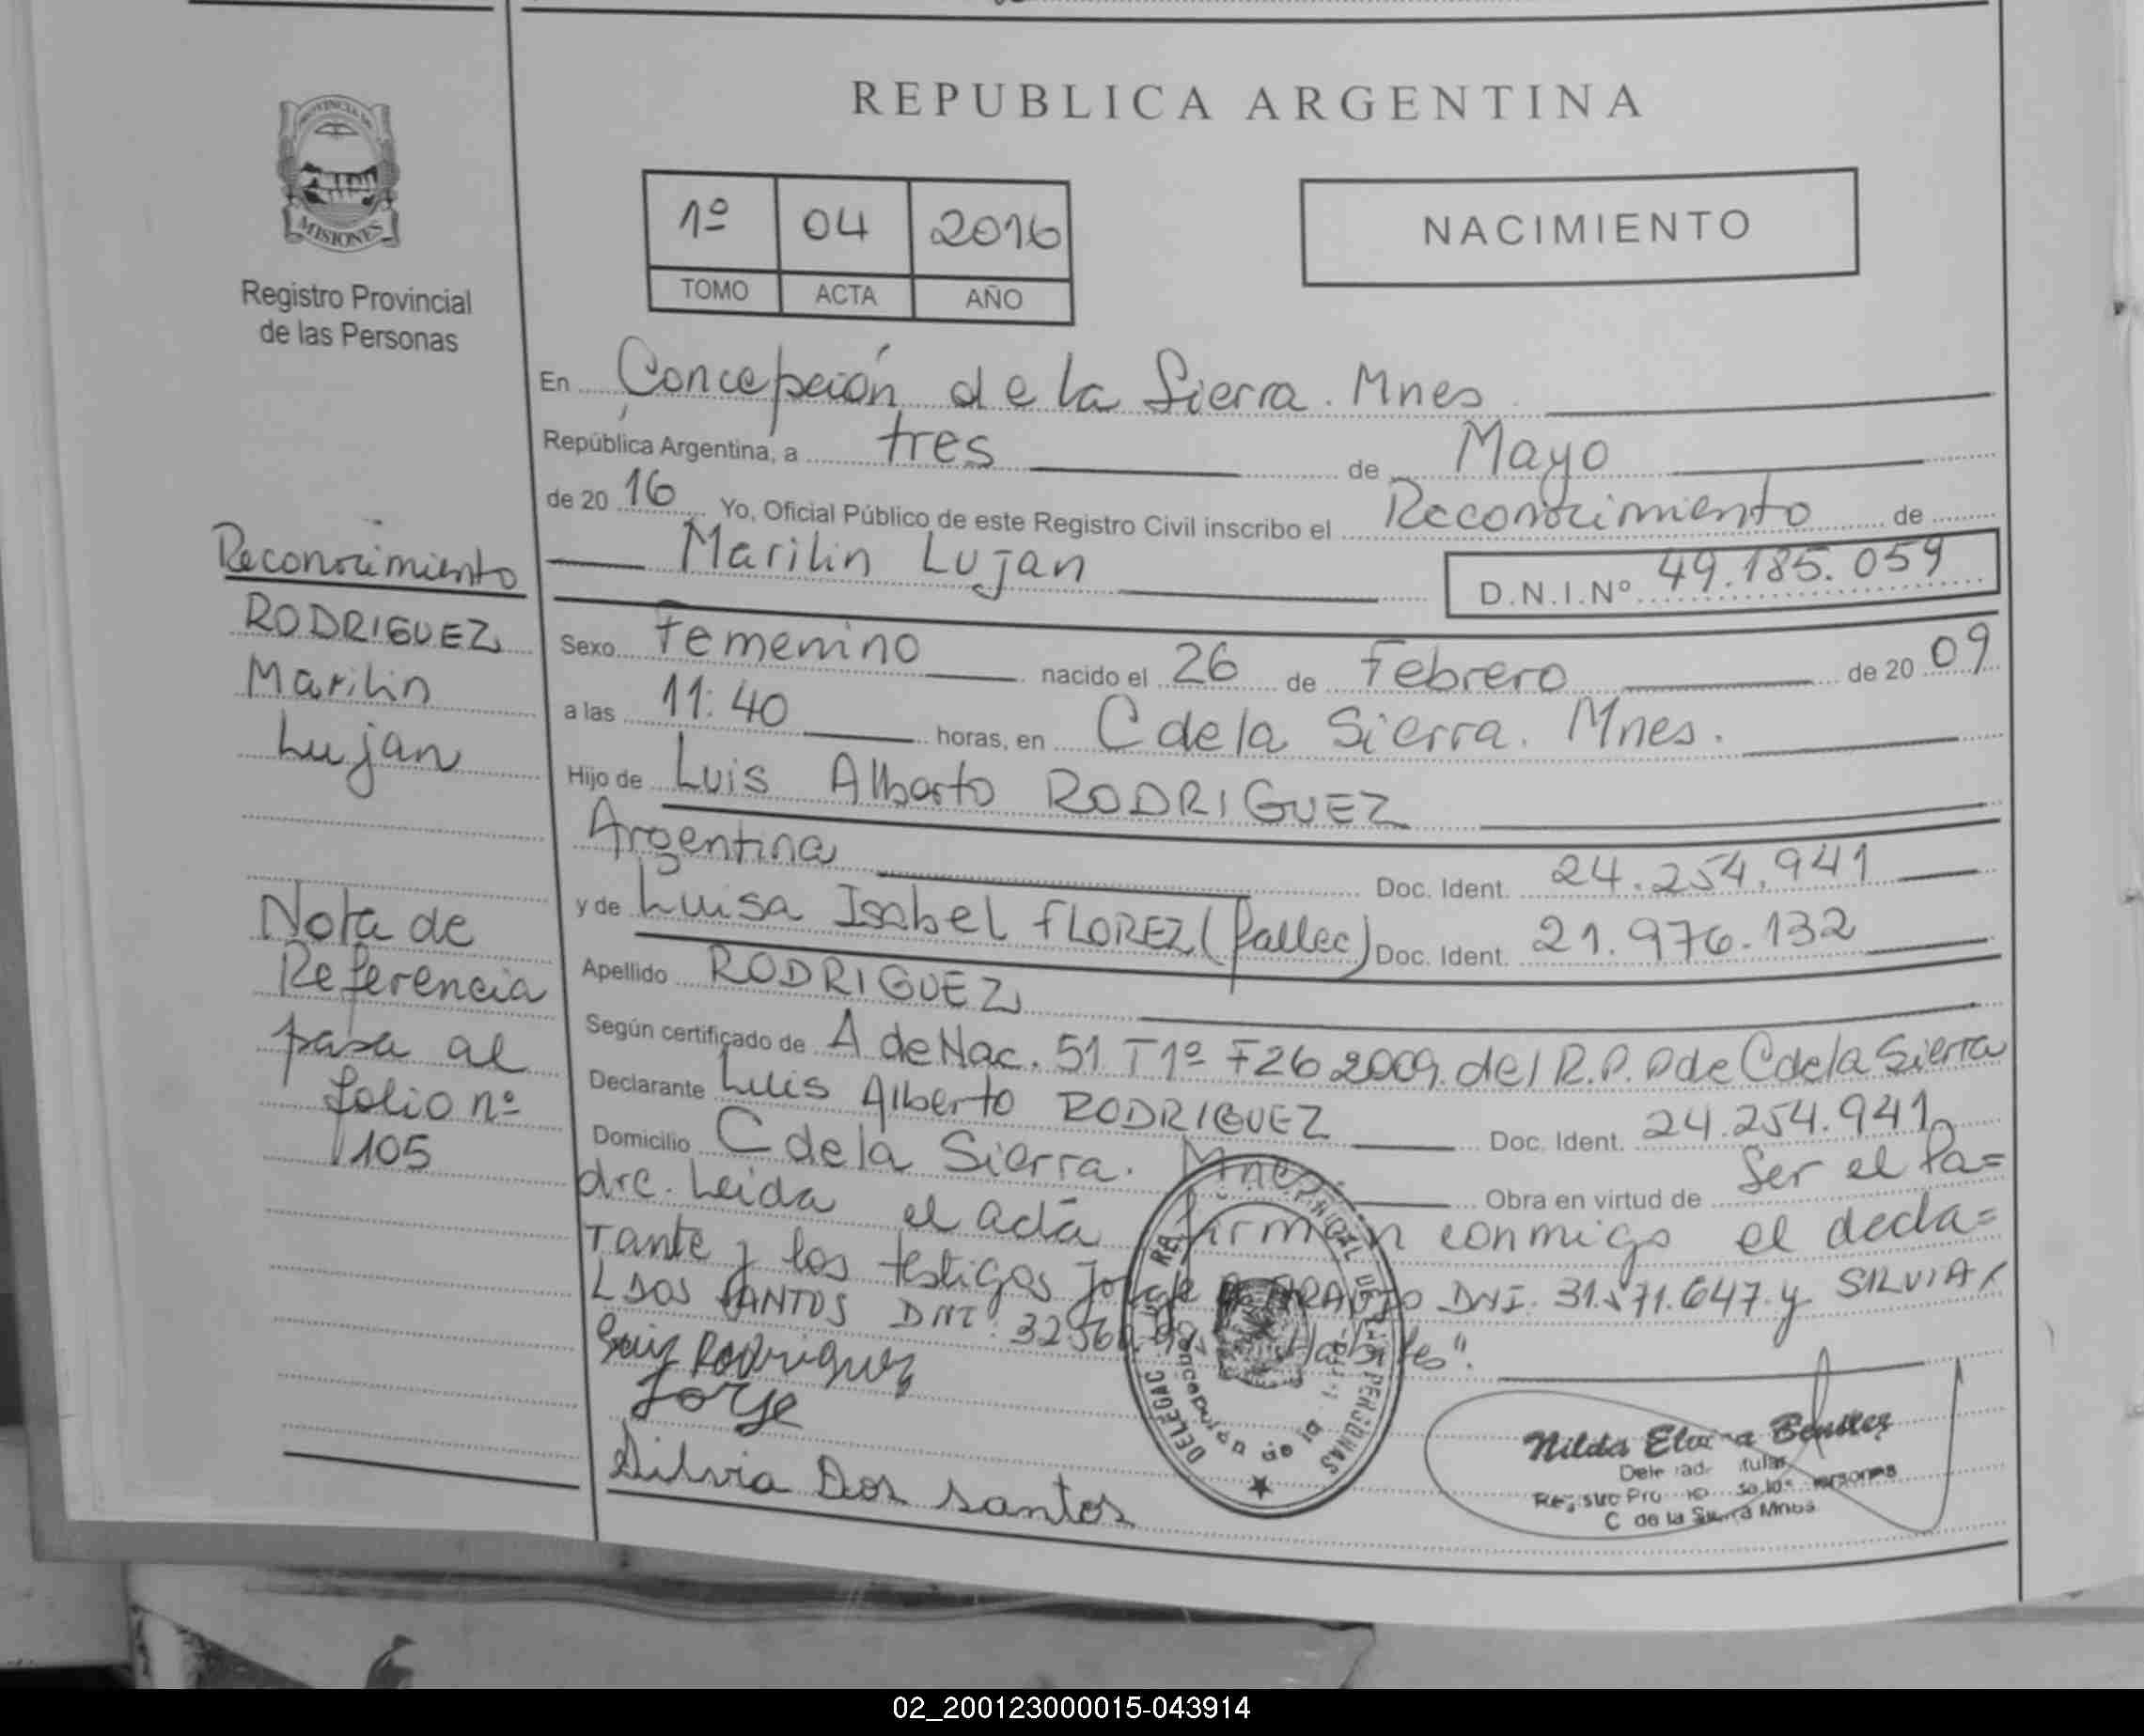 REPUBLICA ARGENTINA
PROVINCIA DE
MISIONES
Registro Provincial
de las Personas
1º 04 2016
TOMO ACTA AÑO
NACIMIENTO
En Concepción de la Sierra. Mnes
República Argentina, a tres de Mayo
de 20 16 Yo, Oficial Público de este Registro Civil inscribo el Reconocimiento de
Marilin Lujan D.N.I.Nº 49.185.059
Sexo Femenino nacido el 26 de Febrero de 20 09
a las 11:40 horas, en C de la Sierra. Mnes.
Hijo de Luis Alberto RODRIGUEZ
Argentina Doc. Ident. 24.254.941
y de Luisa Isabel FLOREZ (fallec) Doc. Ident. 21.976.132
Apellido RODRIGUEZ
Según certificado de A de Nac. 51 T1º F26 2009. del R.P. P de C de la Sierra
Declarante Luis Alberto RODRIGUEZ Doc. Ident. 24.254.941
Domicilio C de la Sierra. Mnes. Obra en virtud de Ser el Pa=
dre. Leida el acta firman conmigo el decla=
rante y los testigos Jorge DNI. 31. 71.647. y SILVIA
L DOS SANTOS DNI: "Habiles".
Luis Rodriguez
Jorge
Silvia Dos santos
Reconocimiento
RODRIGUEZ
Marilin
Lujan
Nota de
Referencia
pasa al
folio nº
105
PERSONAS
Concepción de la
Nilda Elvira Benitez
C de la Sierra Mnes
02_200123000015-043914